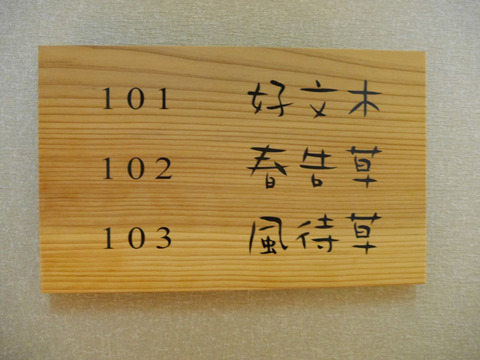 101 好文木
102 春告草
103 風待草